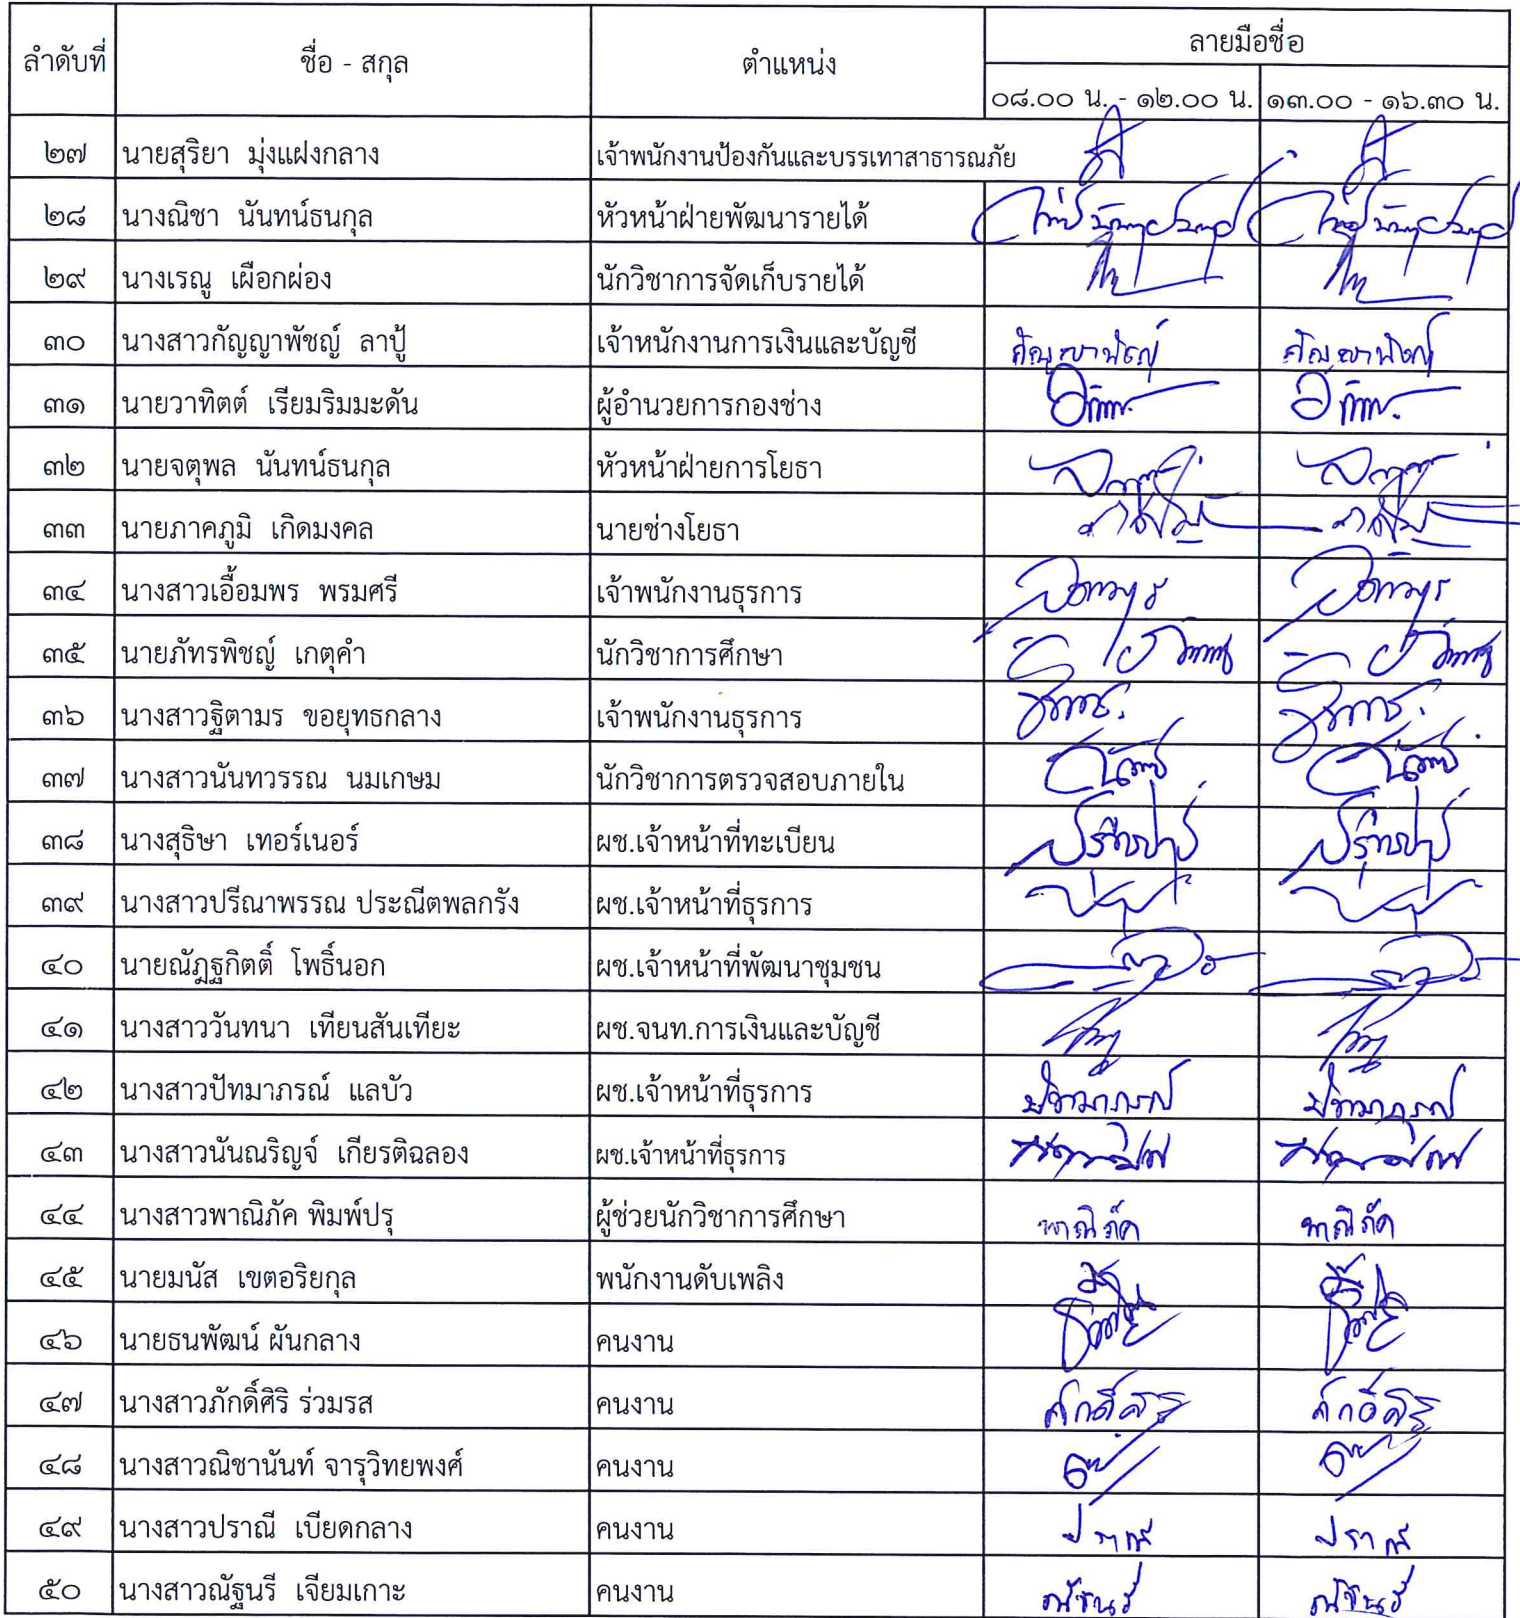 ลำดับที่ ชื่อ - สกุล ตำแหน่ง ลายมือชื่อ
๐๘.๐๐ น. - ๑๒.๐๐ น. ๑๓.๐๐ - ๑๖.๓๐ น.
๒๗ นายสุริยา มุ่งแฝงกลาง เจ้าพนักงานป้องกันและบรรเทาสาธารณภัย
๒๘ นางณิชา นันทน์ธนกุล หัวหน้าฝ่ายพัฒนารายได้
๒๙ นางเรณู เผือกผ่อง นักวิชาการจัดเก็บรายได้
๓๐ นางสาวกัญญาพัชญ์ ลาปู้ เจ้าหนักงานการเงินและบัญชี กัญญาพัชญ์ กัญญาพัชญ์
๓๑ นายวาทิตต์ เรียมริมมะดัน ผู้อำนวยการกองช่าง
๓๒ นายจตุพล นันทน์ธนกุล หัวหน้าฝ่ายการโยธา
๓๓ นายภาคภูมิ เกิดมงคล นายช่างโยธา
๓๔ นางสาวเอื้อมพร พรมศรี เจ้าพนักงานธุรการ
๓๕ นายภัทรพิชญ์ เกตุคำ นักวิชาการศึกษา
๓๖ นางสาวฐิตามร ขอยุทธกลาง เจ้าพนักงานธุรการ
๓๗ นางสาวนันทวรรณ นมเกษม นักวิชาการตรวจสอบภายใน
๓๘ นางสุธิษา เทอร์เนอร์ ผช.เจ้าหน้าที่ทะเบียน
๓๙ นางสาวปรีณาพรรณ ประณีตพลกรัง ผช.เจ้าหน้าที่ธุรการ
๔๐ นายณัฎฐกิตติ์ โพธิ์นอก ผช.เจ้าหน้าที่พัฒนาชุมชน
๔๑ นางสาววันทนา เทียนสันเทียะ ผช.จนท.การเงินและบัญชี
๔๒ นางสาวปัทมาภรณ์ แลบัว ผช.เจ้าหน้าที่ธุรการ ปัทมาภรณ์ ปัทมาภรณ์
๔๓ นางสาวนันณริญจ์ เกียรติฉลอง ผช.เจ้าหน้าที่ธุรการ
๔๔ นางสาวพาณิภัค พิมพ์ปรุ ผู้ช่วยนักวิชาการศึกษา พาณิภัค พาณิภัค
๔๕ นายมนัส เขตอริยกุล พนักงานดับเพลิง
๔๖ นายธนพัฒน์ ผันกลาง คนงาน
๔๗ นางสาวภักดิ์ศิริ ร่วมรส คนงาน ภักดิ์ศิริ ภักดิ์ศิริ
๔๘ นางสาวณิชานันท์ จารุวิทยพงศ์ คนงาน
๔๙ นางสาวปราณี เบียดกลาง คนงาน ปราณี ปราณี
๕๐ นางสาวณัฐนรี เจียมเกาะ คนงาน ณัฐนรี ณัฐนรี